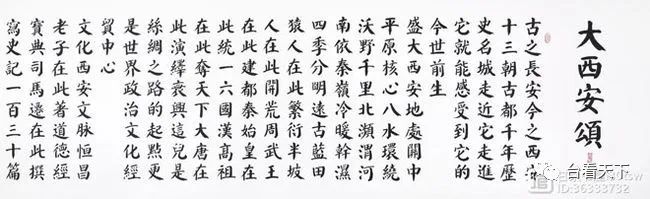 大西安頌
古之長安今之西安
十三朝古都千年歷
史名城走近它走進
它就能感受到它的
今世前生
盛大西安地處關中
平原核心八水環繞
沃野千里北瀕渭河
南依秦嶺冷暖幹濕
四季分明遠古藍田
猿人在此繁衍半坡
人在此開荒周武王
在此建都秦始皇在
此統一六國漢高祖
在此奪天下大唐在
此演繹衰興這兒是
絲綢之路的起點更
是世界政治文化經
貿中心
文化西安文脈恒昌
老子在此著道德經
寶典司馬遷在此撰
寫史記一百三十篇
台看天下
ID:36333732